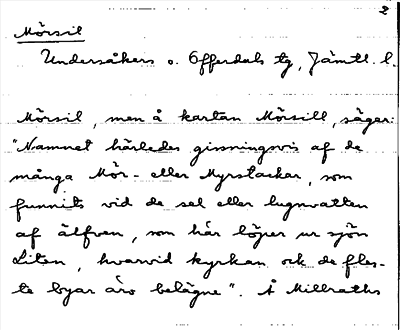 2
Mörsil
Undersåkers o. Offerdals tg, Jämtl. l.
Mörsil, men å kartan Mörsill, säger:
"Namnet härledes gissningsvis af de
många Mör- eller Myrstackar, som
funnits vid de sel eller lugnvatten
af älfven, som här löper ur sjön
Liten, hvarvid kyrkan ock de fles-
te byar äro belägne". Å Millraths